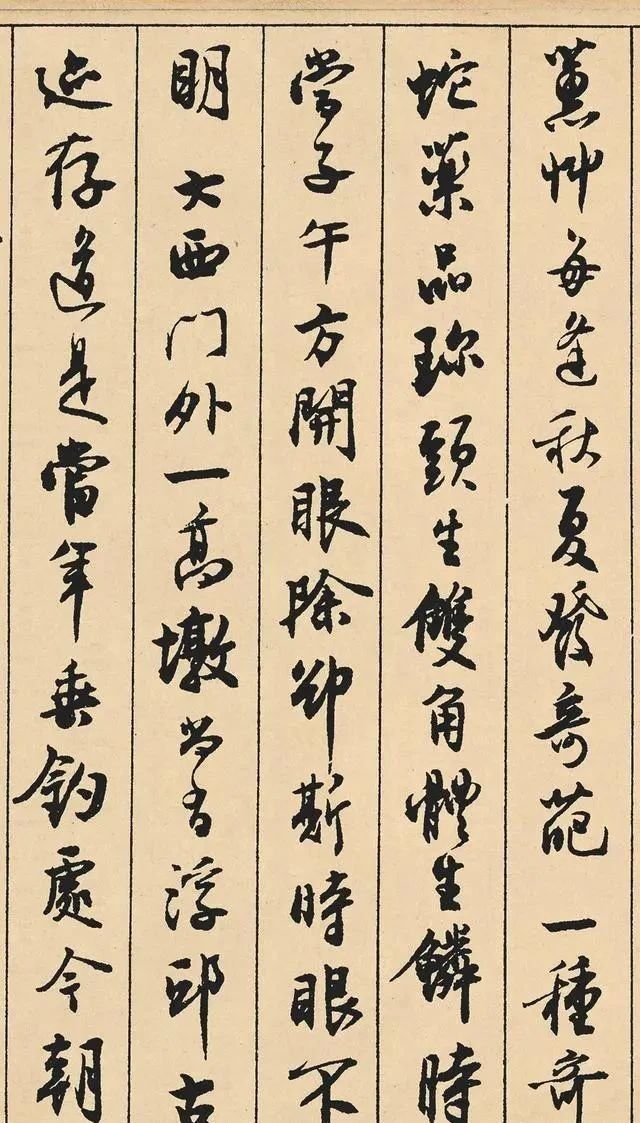 蕙艸每逢秋夏發奇葩 一種奇
蛇藥品珍頭生雙角體生鱗時
當子午方開眼除卻斯時眼不
明 大西門外一高墩尚有浮邱古
迹存道是當年垂釣處今朝